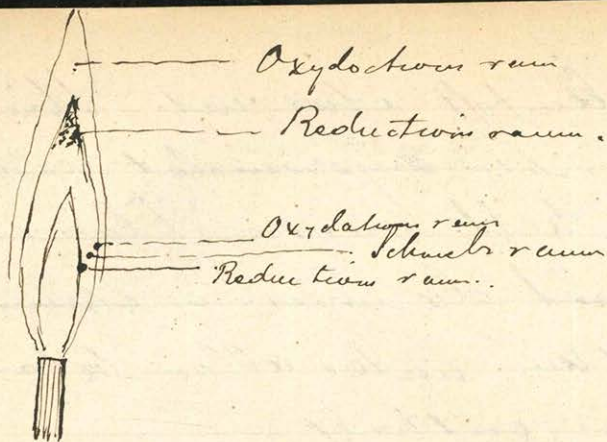 Oxydations raum
Reductions raum.
Oxydations raum
Schmelz raum
Reductions raum.